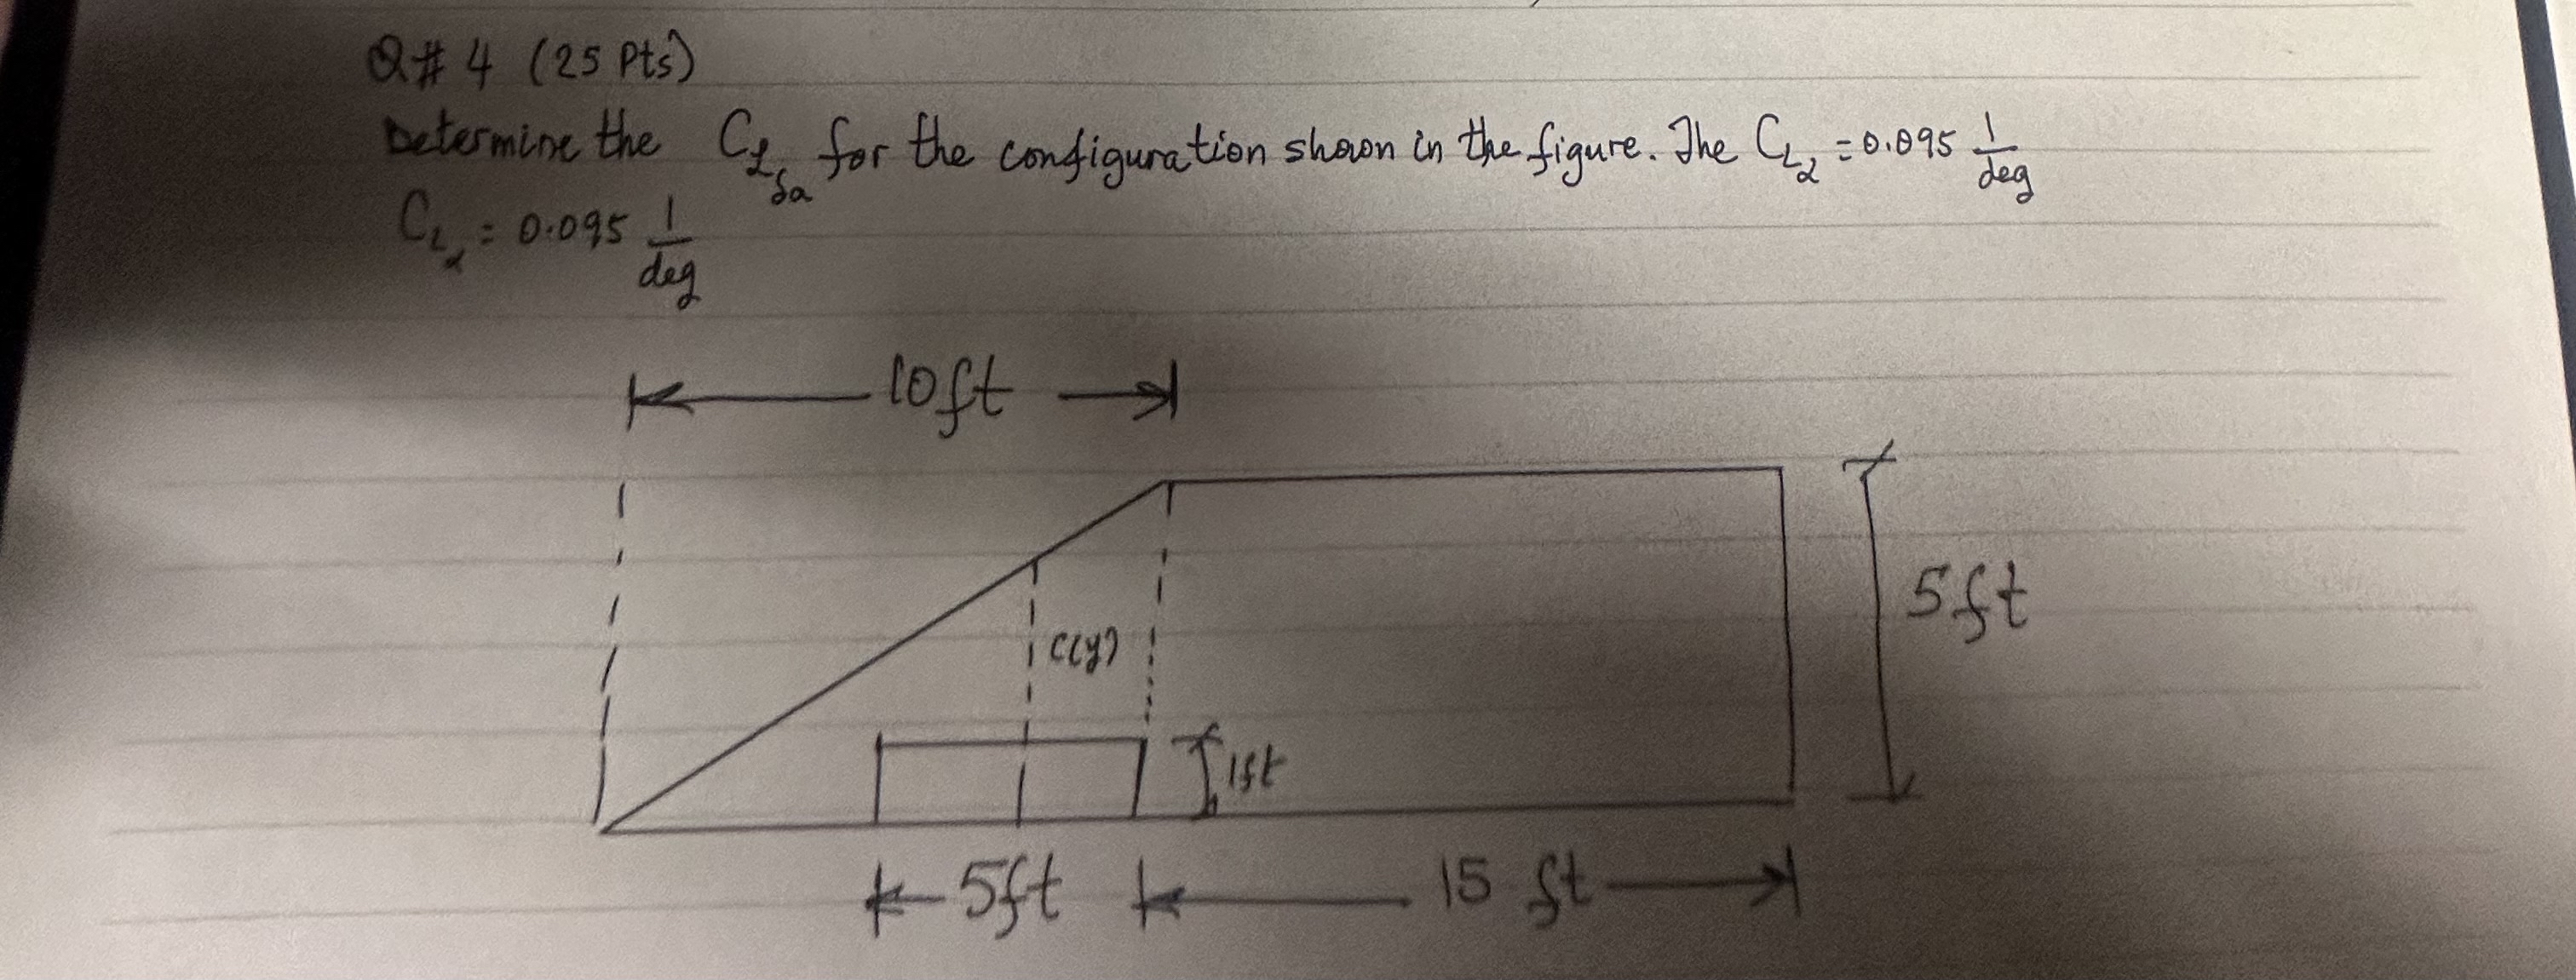 Q# 4 (25 Pts)
Determine the C_l_δa for the configuration shown in the figure. The C_L_α = 0.095 1/deg
C_L_α = 0.095 1/deg
10ft
5ft
C(y)
1ft
5ft
15 ft